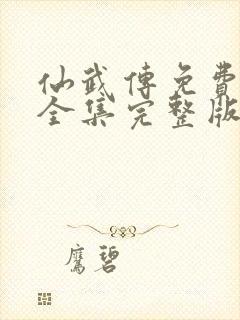 仙武傳免費
全集完整版
鷹碧